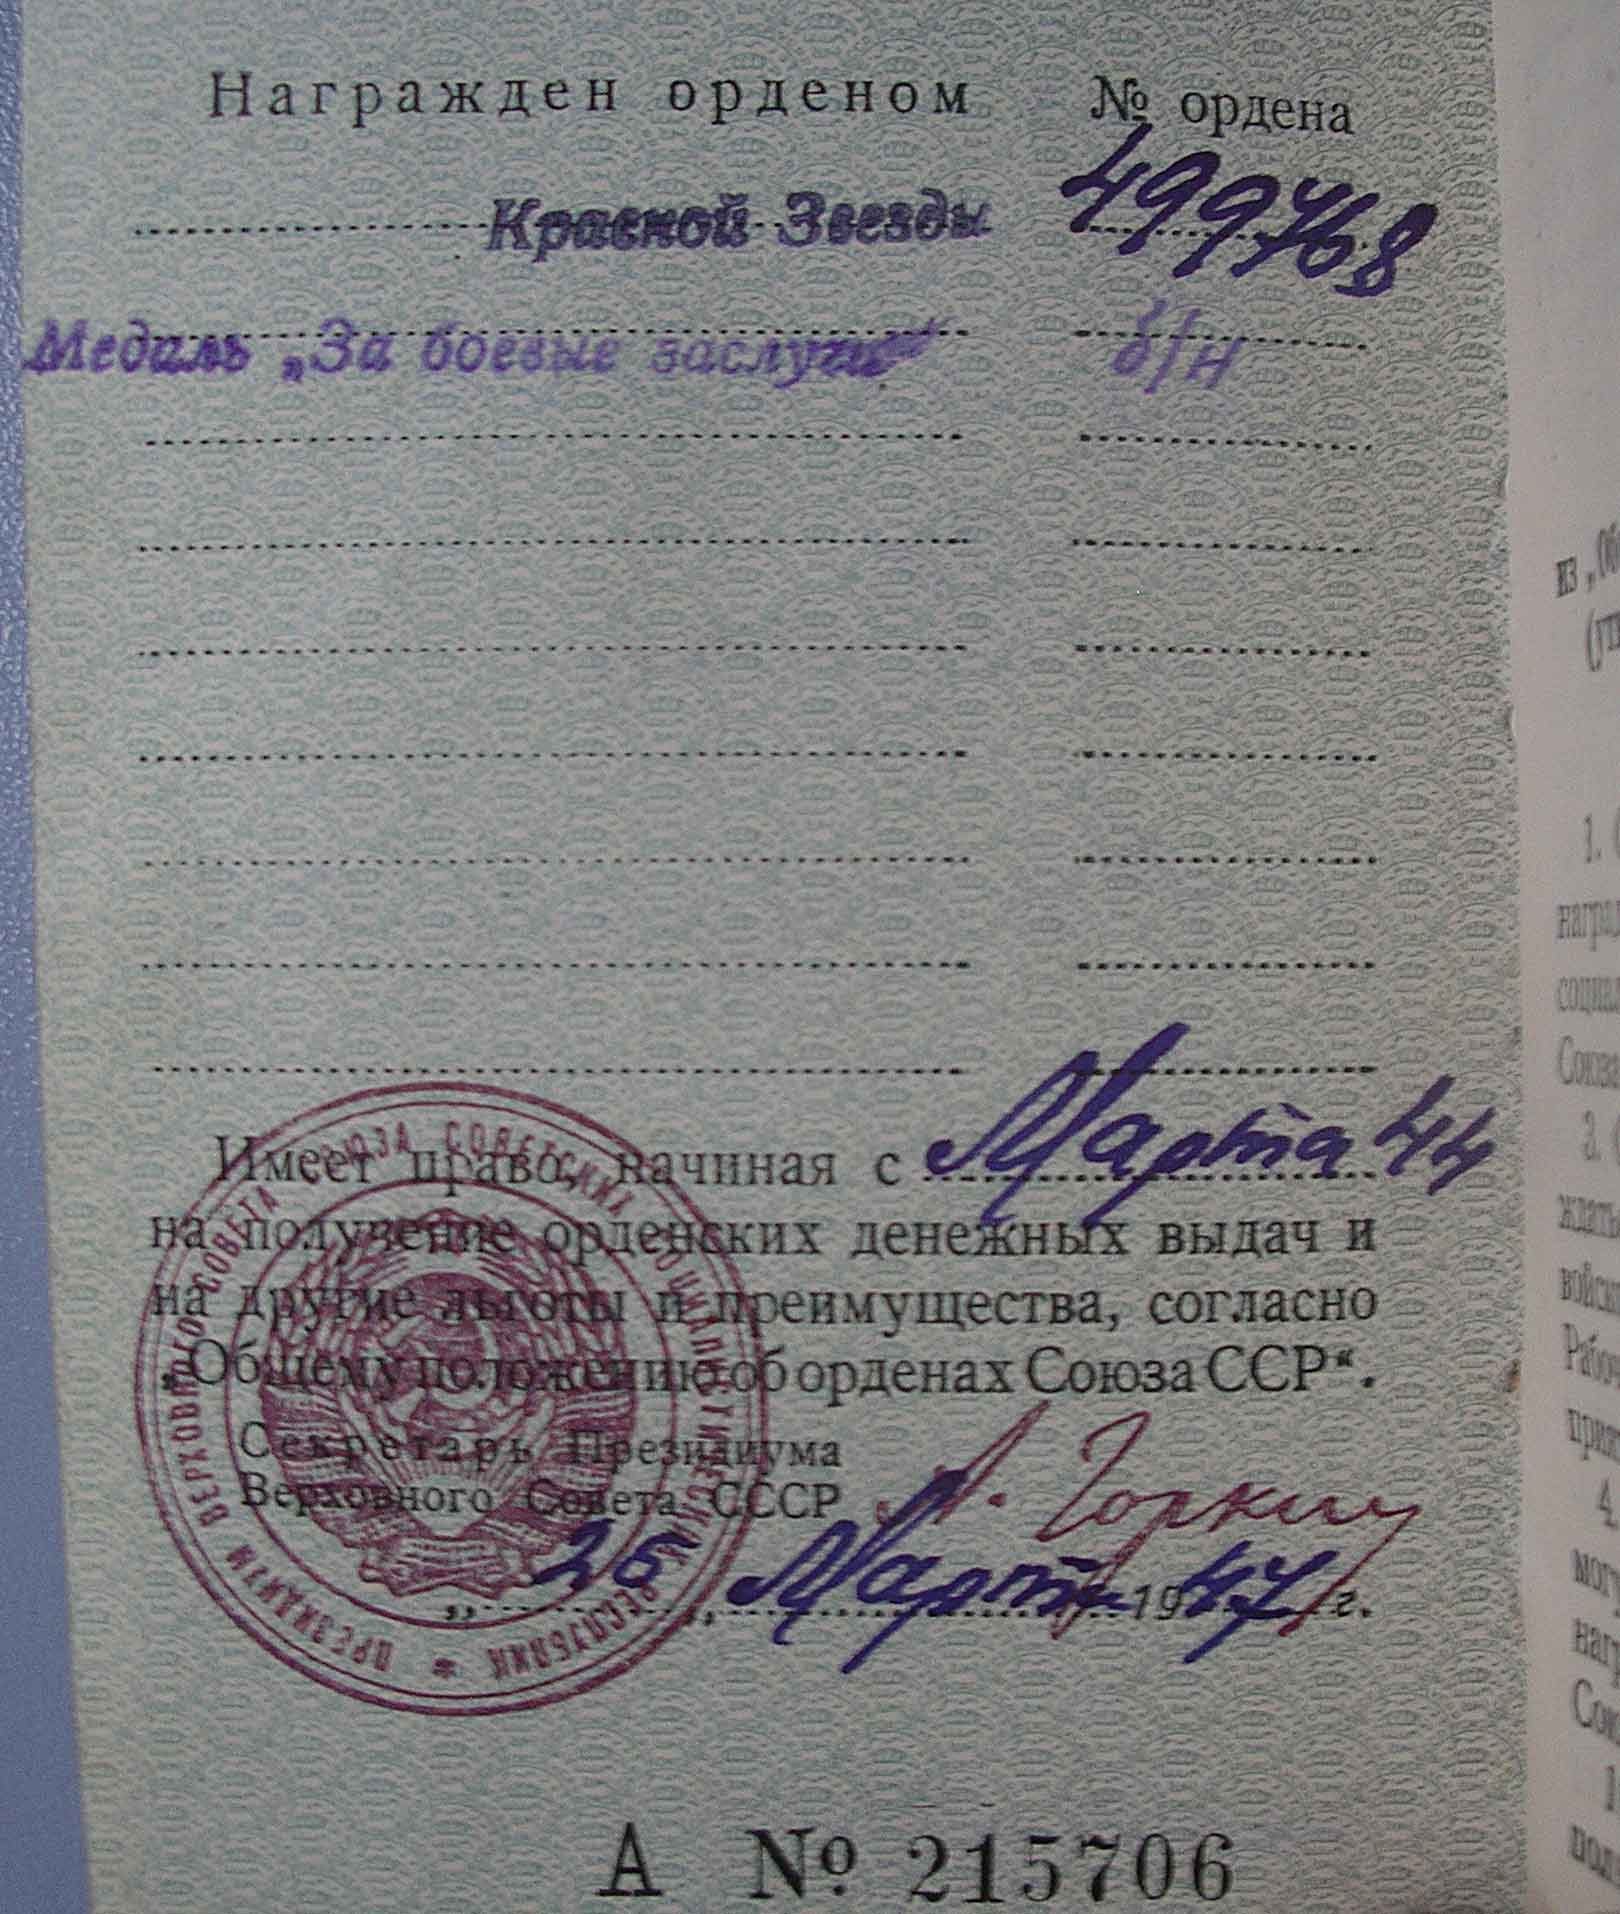 Награжден орденом № ордена
Красной Звезды 499768
Медаль „За боевые заслуги" б/н
Имеет право, начиная с Марта 44
на получение орденских денежных выдач и
на другие льготы и преимущества, согласно
„Общему положению об орденах Союза ССР“.
Секретарь Президиума
Верховного Совета СССР А. Горкин
„26„ Марта 1947 г.
ПРЕЗИДИУМ ВЕРХОВНОГО СОВЕТА СОЮЗА СОВЕТСКИХ СОЦИАЛИСТИЧЕСКИХ РЕСПУБЛИК *
А № 215706
из „Об
1.
награ
социал
Союза
3.
ждать
войск
Рабоч
прият
4.
могу
нагр
Сою
1
поло